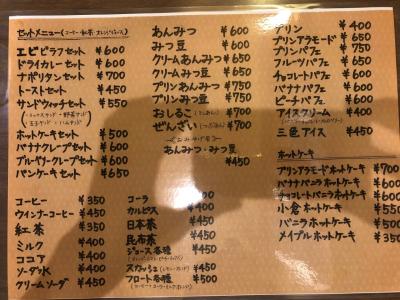 セットメニュー(コーヒー・紅茶・オレンジジュース)
エビピラフセット ¥600
ドライカレーセット ¥600
ナポリタンセット ¥700
トーストセット ¥450
サンドウィッチセット ¥550
ホットケーキセット ¥500
バナナクレープセット ¥600
ブルーベリークレープセット ¥600
パンケーキセット ¥550
コーヒー ¥350
ウィンナーコーヒー ¥450
紅茶 ¥350
ミルク ¥400
ココア ¥400
ソーダ水 ¥400
クリームソーダ ¥450
あんみつ ¥600
みつ豆 ¥600
クリームあんみつ ¥650
クリームみつ豆 ¥650
プリンあんみつ ¥750
プリンみつ豆 ¥750
おしるこ(こしあん) ¥700
ぜんざい(つぶあん) ¥700
あんみつ・みつ豆
¥450
コーラ ¥400
カルピス ¥400
日本茶 ¥450
昆布茶 ¥450
ジュース各種 ¥450
スカッシュ ¥450
フロート各種 ¥500
プリン ¥400
プリンアラモード ¥650
プリンパフェ ¥650
フルーツパフェ ¥650
チョコレートパフェ ¥600
バナナパフェ ¥600
ピーチパフェ ¥600
アイスクリーム ¥400
三色アイス ¥450
ホットケーキ
プリンアラモードホットケーキ ¥700
バナナバニラホットケーキ ¥600
チョコレートバニラホットケーキ
小倉ホットケーキ ¥550
バニラホットケーキ ¥500
メイプルホットケーキ ¥350